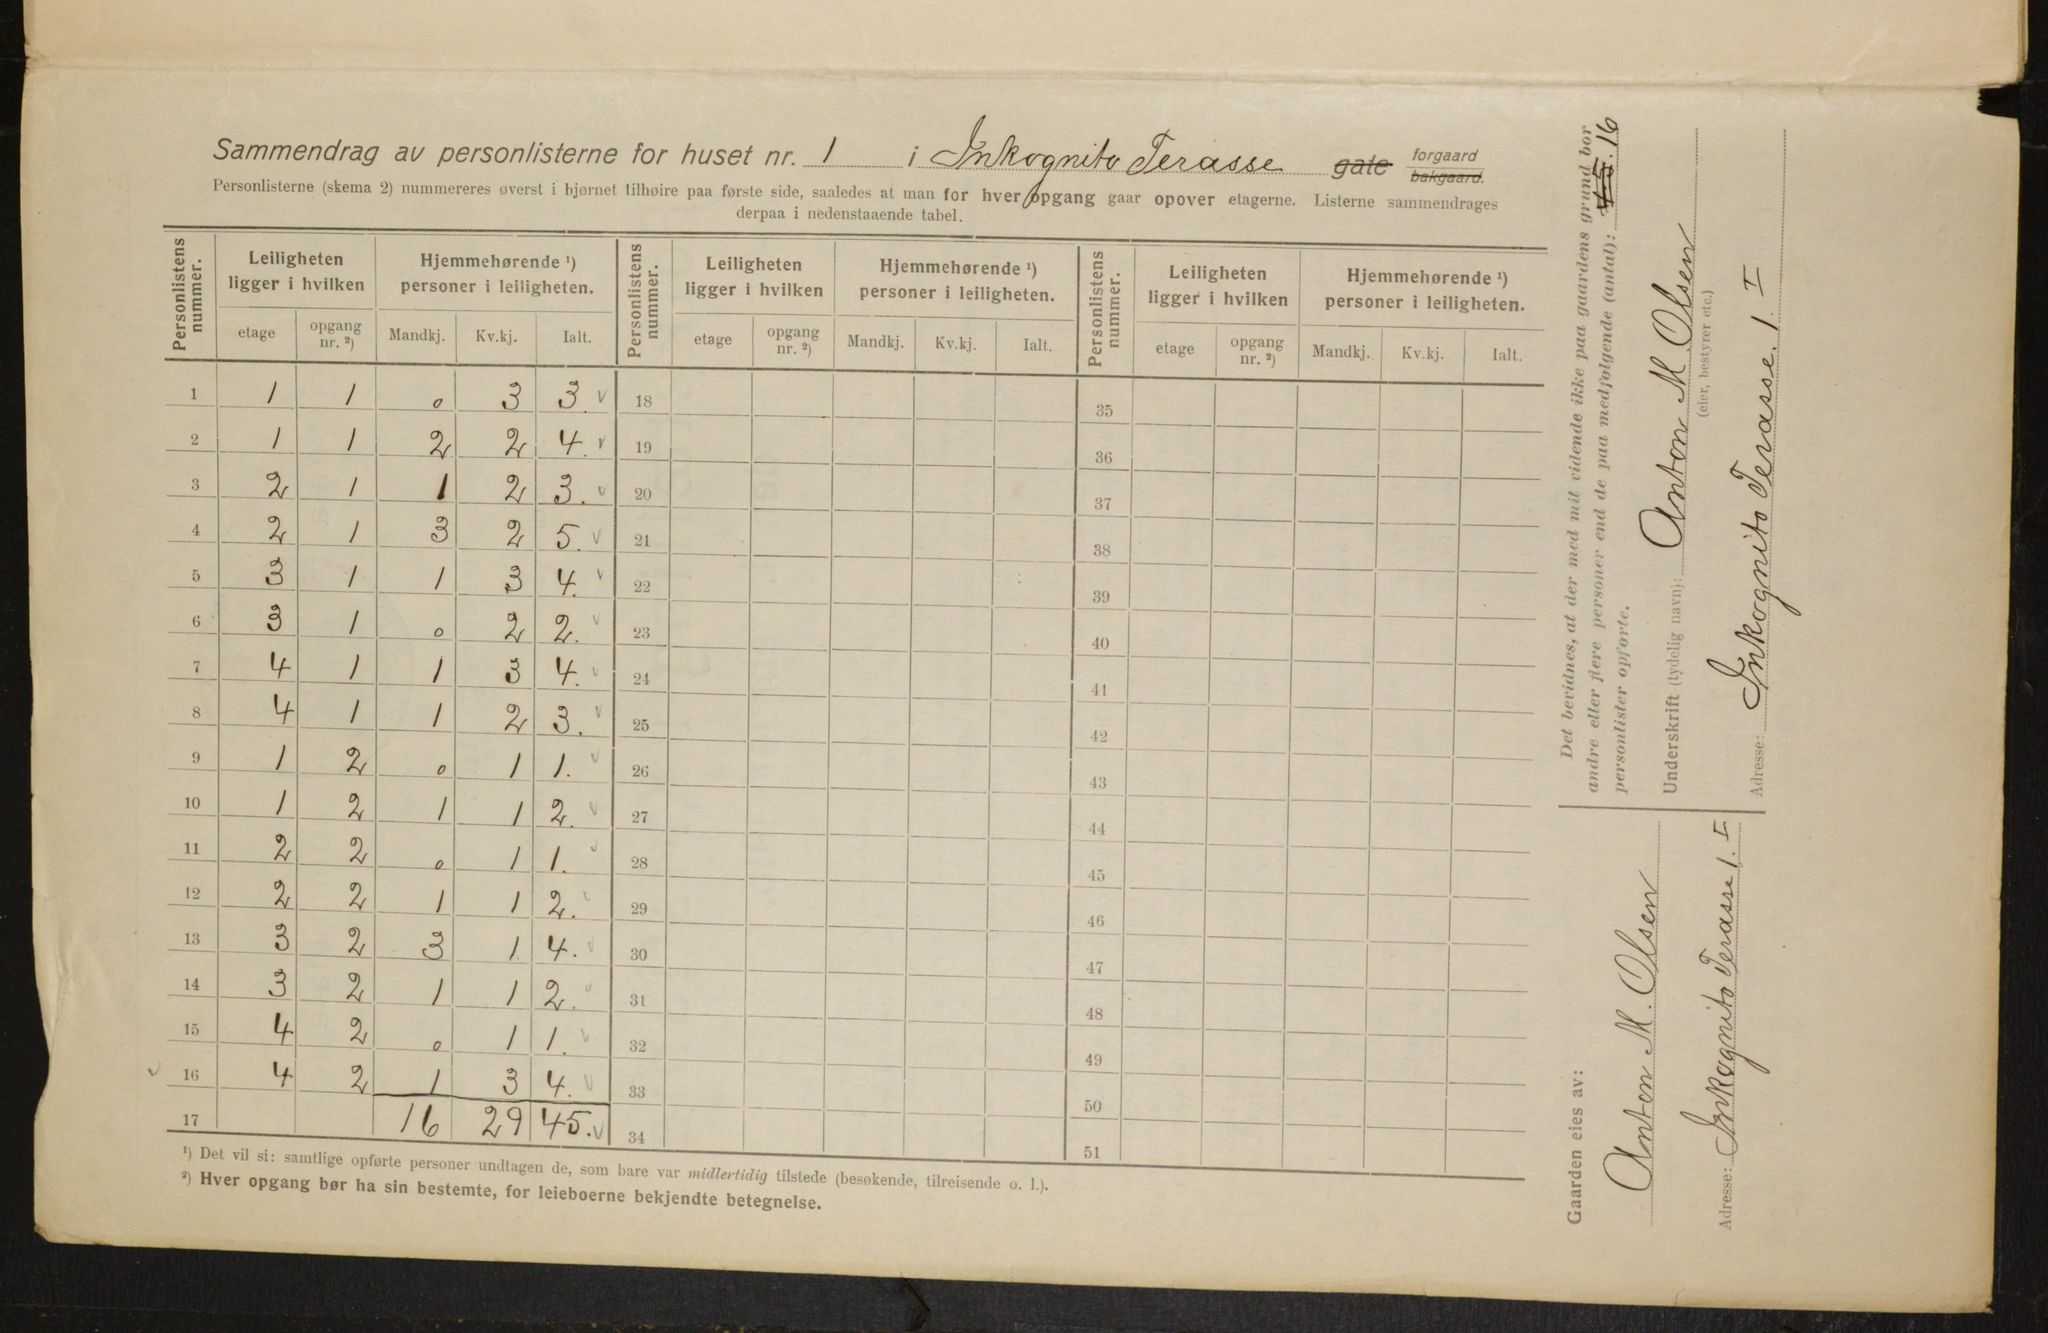 Sammendrag av personlisterne for huset nr. 1 i Inkognito Terasse gate forgaard bakgaard.
Personlisterne (skema 2) nummereres øverst i hjørnet tilhøire paa første side, saaledes at man for hver opgang gaar opover etagerne. Listerne sammendrages
derpaa i nedenstaaende tabel.
Personlistens nummer. Leiligheten ligger i hvilken Hjemmehørende ¹) personer i leiligheten. Personlistens nummer. Leiligheten ligger i hvilken Hjemmehørende ¹) personer i leiligheten. Personlistens nummer. Leiligheten ligger i hvilken Hjemmehørende ¹) personer i leiligheten.
etage opgang nr. ²) Mandkj. Kv.kj. Ialt. etage opgang nr. ²) Mandkj. Kv.kj. Ialt. etage opgang nr. ²) Mandkj. Kv.kj. Ialt.
1 1 1 0 3 3. 18 35
2 1 1 2 2 4. 19 36
3 2 1 1 2 3. 20 37
4 2 1 3 2 5. 21 38
5 3 1 1 3 4. 22 39
6 3 1 0 2 2. 23 40
7 4 1 1 3 4. 24 41
8 4 1 1 2 3. 25 42
9 1 2 0 1 1. 26 43
10 1 2 1 1 2. 27 44
11 2 2 0 1 1. 28 45
12 2 2 1 1 2. 29 46
13 3 2 3 1 4. 30 47
14 3 2 1 1 2. 31 48
15 4 2 0 1 1. 32 49
16 4 2 1 3 4. 33 50
17 16 29 45. 34 51
¹) Det vil si: samtlige opførte personer undtagen de, som bare var midlertidig tilstede (besøkende, tilreisende o. l.).
²) Hver opgang bør ha sin bestemte, for leieboerne bekjendte betegnelse.
Det bevidnes, at der med mit vidende ikke paa gaardens grund bor
andre eller flere personer end de paa medfølgende (antal): 45. 16
personlister opførte.
Underskrift (tydelig navn): Anton M Olsen
(eier, bestyrer etc.)
Adresse: Inkognito Terasse. 1. I
Gaarden eies av:
Anton M. Olsen
Adresse: Inkognito Terasse 1. I